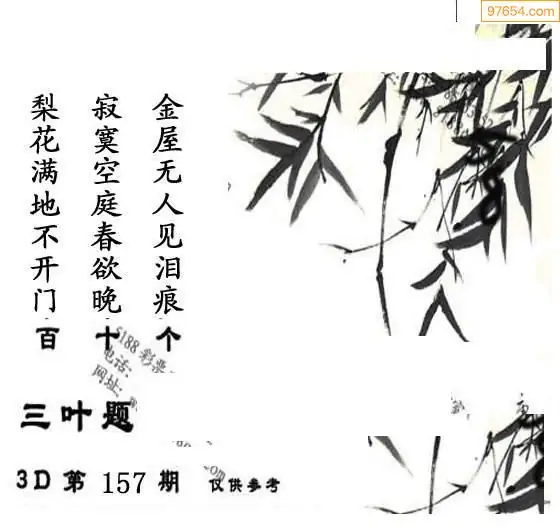 97654.com
金屋无人见泪痕
寂寞空庭春欲晚
梨花满地不开门
百 十 个
5188 彩票
电话:
网址:
三叶题
3D 第 157 期 仅供参考